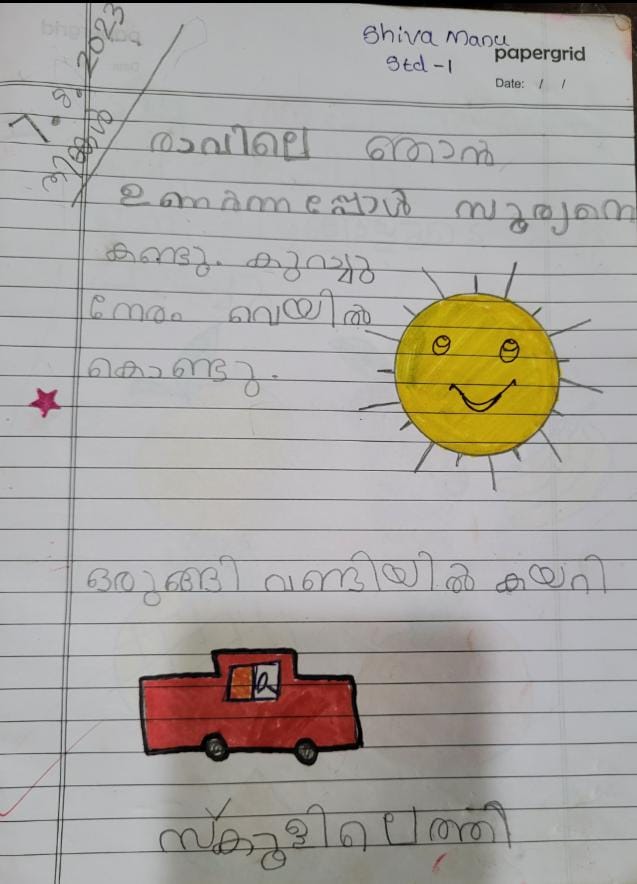 Shiva Manu
Std-1
papergrid
Date: / /
7.8.2023
തിങ്കൾ
രാവിലെ ഞാൻ
ഉണർന്നപ്പോൾ സൂര്യനെ
കണ്ടു. കുറച്ചു
നേരം വെയിൽ
കൊണ്ടു.
ഒരുങ്ങി വണ്ടിയിൽ കയറി
സ്കൂളിലെത്തി